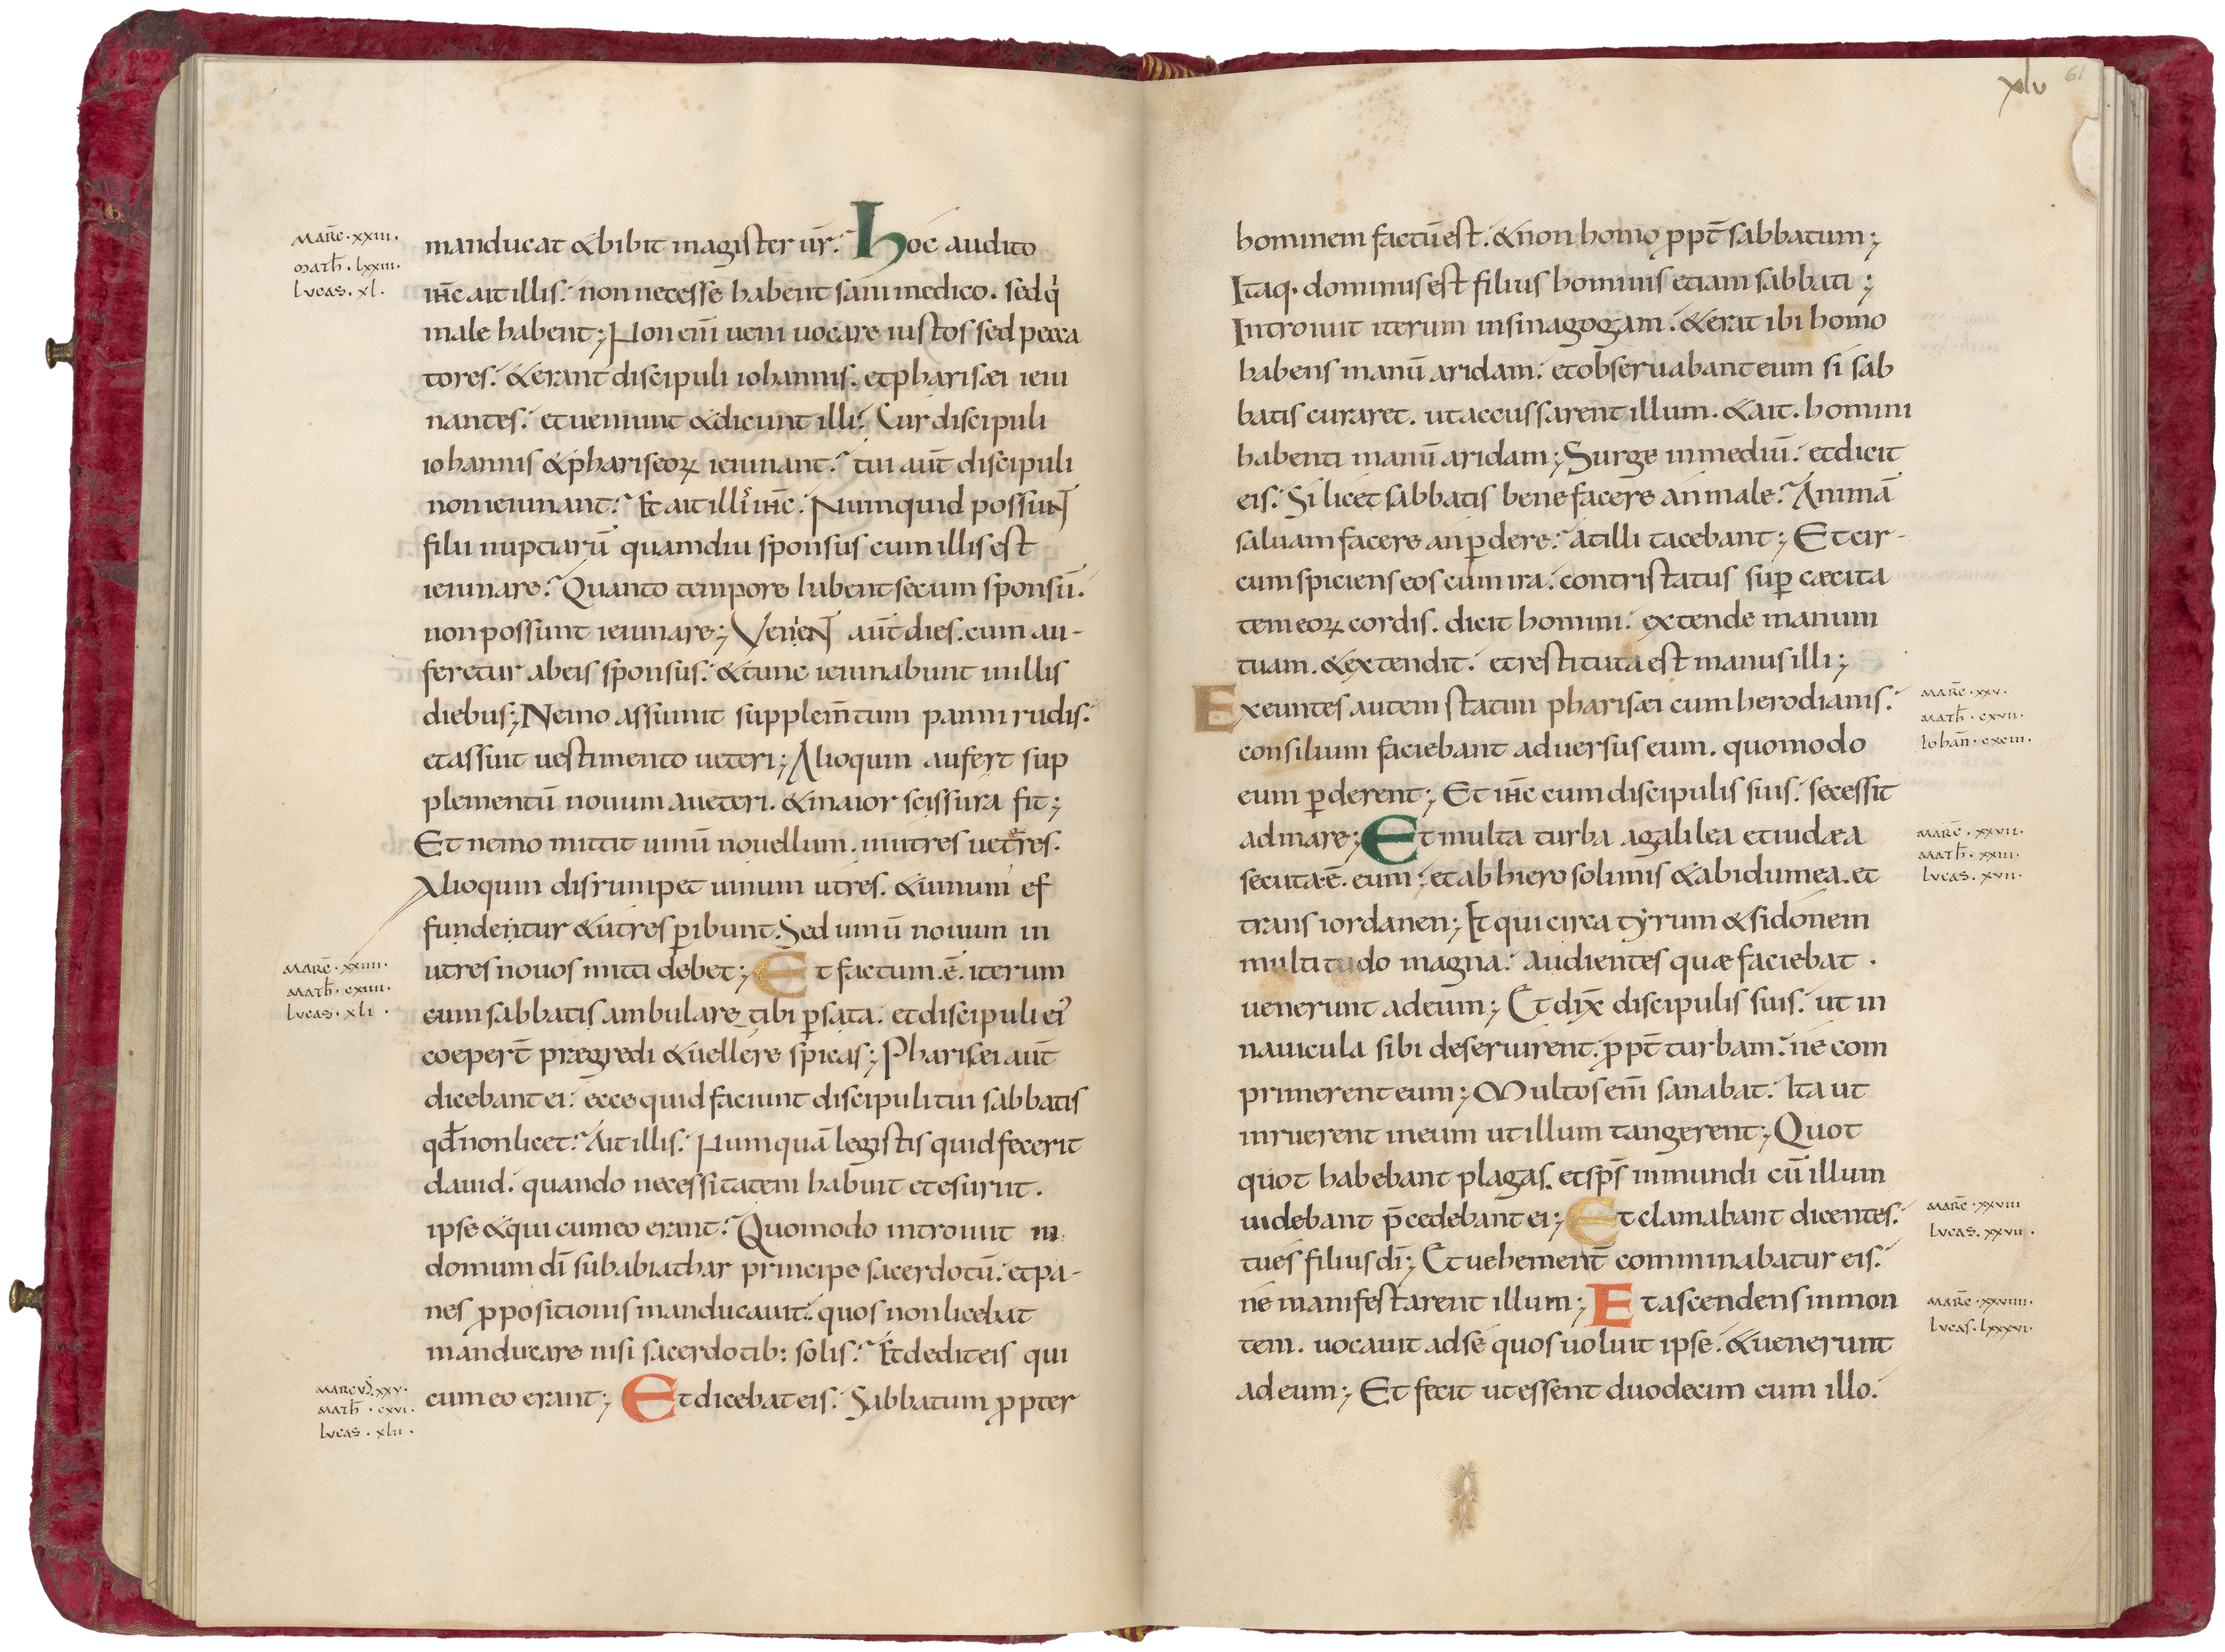 marc̄ · xxiii ·
math̄ · lxxiii ·
lucas · xl ·
manducat & bibit magister ur̄ . hoc audito
ih̄c ait illis . non necesse habent sani medico . sed q̇
male habent ; Non eni̅ veni uocare iustos sed pecca
tores . & erant discipuli iohannis . et pharisæi ieiu
nantes . et ueniunt & dicunt illi . Cur discipuli
iohannis & phariseoꝝ ieiunant . tui aut̄ discipuli
non ieiunant . Et ait illis ih̄c . Numquid possunt
filii nuptiarū quamdiu sponsus cum illis est
ieiunare . Quanto tempore habent secum sponsū .
non possunt ieiunare ; Venient aut̄ dies . cum au -
feretur ab eis sponsus . & tunc ieiunabunt in illis
diebus ; Nemo assumit supplem̄tum panni rudis .
et assuit uestimento ueteri ; Alioquin aufert sup
plementū nouum a ueteri . & maior scissura fit ;
Et nemo mittit uinū nouellum . in utres ueteres .
Alioquin disrumpet uinum utres . & uinum ef
fundentur & utres ꝑibunt . Sed uinū nouum in
marc̄ · xxiiii ·
math̄ · cxiiii ·
lucas · xli ·
utres nouos mitti debet ; Et factum . ē . iterum
cum sabbatis ambulare tibi ꝑ sata . et discipuli ei᾽
coepert̄ prægredi & uellere spicas ; Pharisæi aut̄
dicebant ei . ecce quid faciunt discipuli tui sabbatis
qd̄ non licet . Ait illis . Numquā legistis quid fecerit
dauid . quando necessitatem habuit et esuriit .
ipse & qui cum eo erant . Quomodo introiuit in
domum dī sub abiathar principe sacerdotū . et pa -
nes ꝓpositionis manducauit . quos non licebat
manducare nisi sacerdotib: solis . Et dedit eis qui
marcus . xxv .
math̄ · cxvi .
lucas · xlii ·
cum eo erant ; Et dicebat eis . Sabbatum ꝓpter
xlv
61
hominem factū est . & non homo ꝓpt̄ sabbatum ;
Itaq· dominus est filius hominis etiam sabbati ;
Introiuit iterum in sinagogam . & erat ibi homo
habens manū aridam . et obseruabant eum si sab
batis curaret . ut accussarent illum . & ait . homini
habenti manū aridam ; Surge in mediū . et dicit
eis . Si licet sabbatis bene facere an male . Animā
saluam facere an ꝑdere . at illi tacebant ; Et cir -
cumspiciens eos cum ira . contristatus suꝑ cæcita
tem eoꝝ cordis . dicit homini . extende manum
tuam . & extendit . et restituta est manus illi ;
Exeuntes autem statim pharisæi cum herodianis .
marc̄ · xxv ·
math̄ · cxvii ·
iohan̄ · cxciii ·
consilium faciebant aduersus eum . quomodo
eum ꝑderent ; Et ih̄c cum discipulis suis . secessit
ad mare ; Et multa turba a galilea et iudæa
marc̄ · xxvii ·
math̄ · xxiii ·
lucas · xvii ·
secuta . ē . eum ; et ab hierosolimis & ab idumea . et
trans iordanen ; Et qui circa tyrum & sidonem
multitudo magna . audientes quæ faciebat .
uenerunt ad eum ; Et dix̄ discipulis suis . ut in
nauicula sibi deseruirent . ꝓpt̄ turbam . ne com
primerent eum ; Multos eni̅ sanabat . Ita ut
inruerent in eum ut illum tangerent ; Quot
quot habebant plagas . et sp̄s inmundi cū illum
uidebant p̄cedebant ei ; Et clamabant dicentes .
marc̄ · xxviii
lucas . xxvii ·
tu es filius dī ; Et uehement̄ comminabatur eis .
ne manifestarent illum ; Et ascendens in mon
marc̄ · xxviiii ·
lucas . lxxxvi ·
tem . uocauit ad se quos uoluit ipse . & uenerunt
ad eum ; Et fecit ut essent duodecim cum illo .